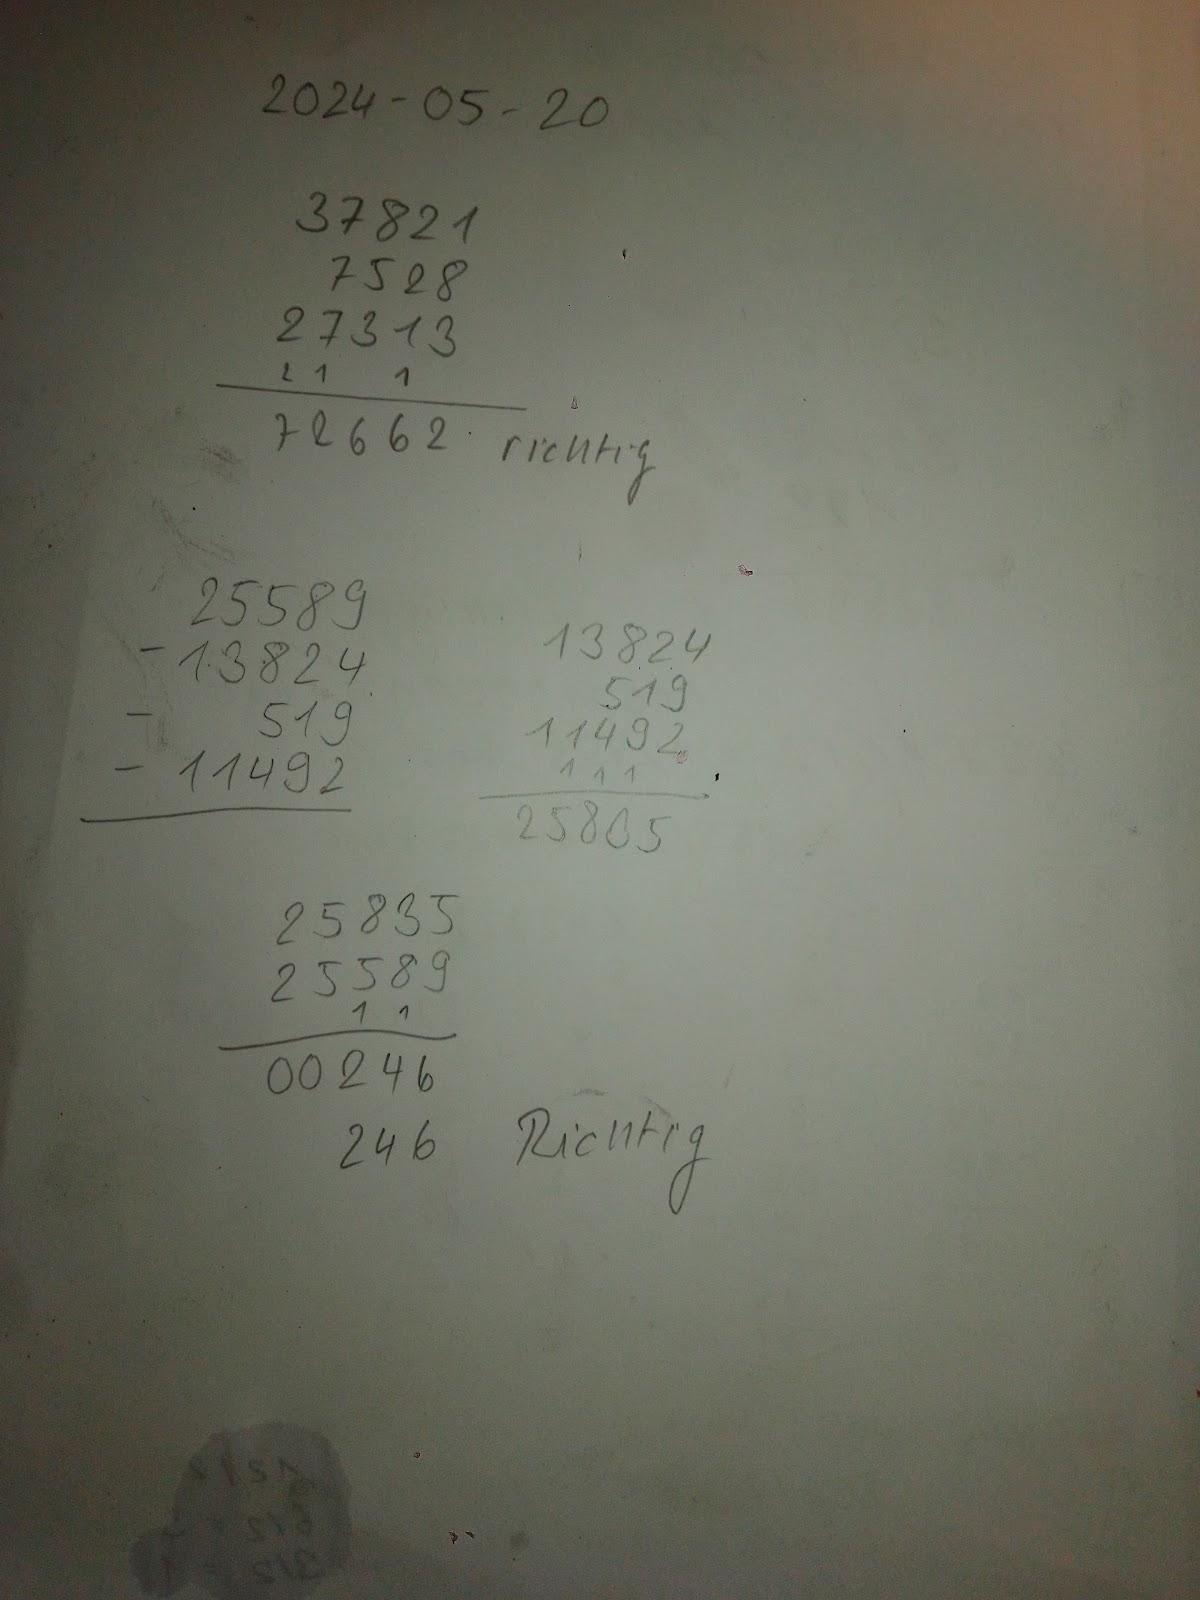 2024-05-20
37821
7528
27313
21 1
72662 richtig
25589
- 13824
- 519
- 11492
13824
519
11492
111
25805
25835
25589
1 1
00246
246 Richtig